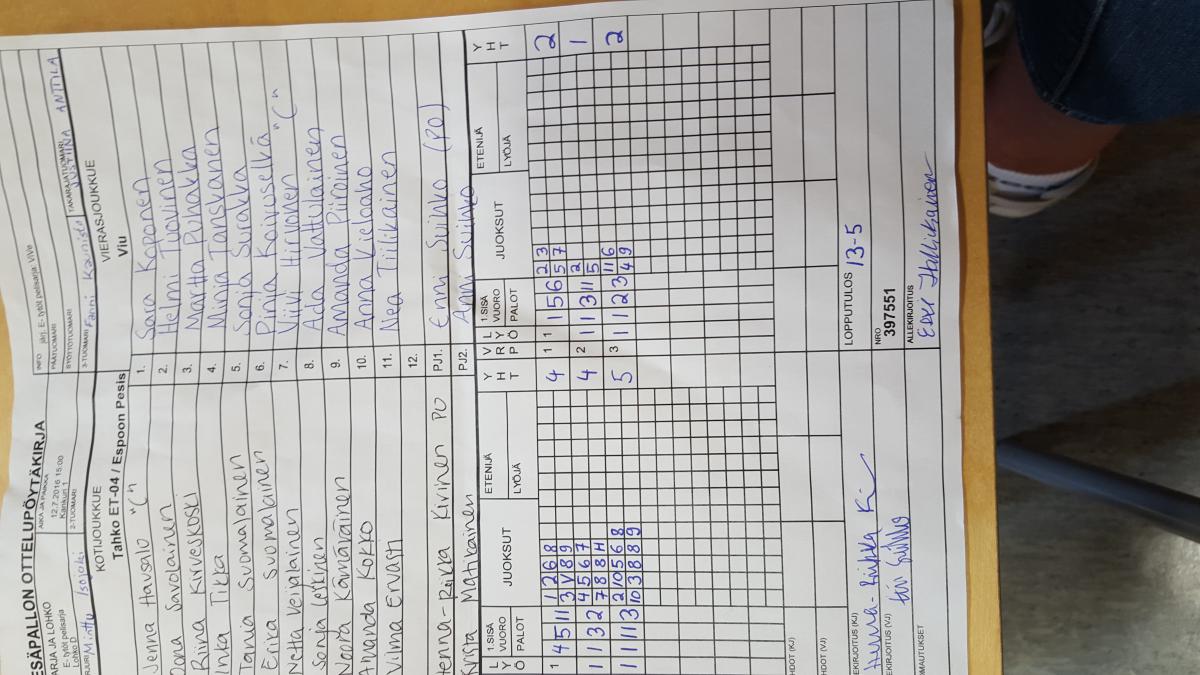 ESÄPALLON OTTELUPÖYTÄKIRJA
ARJA JA LOHKO
E- tytöt pelisarja
Lohko D
AIKA JA PAIKKA
12.7.2016 15:00
Kankuri 1
INFO järj. E- tytöt pelisarja: ViVe
PÄÄTUOMARI
SYÖTTÖTUOMARI
Minttu Isojoki
2-TUOMARI
3-TUOMARI Fanni Kaunisto
TAKARAJATUOMARI JUSTIINA ANTTILA
KOTIJOUKKUE
Tahko ET-04 / Espoon Pesis
VIERASJOUKKUE
Viu
Jenna Havusalo "C"
Oona Savolainen
Riina Kirveskoski
Inka Tikka
Tanja Suomalainen
Erika Suomalainen
Netta Veijalainen
Sonja Leskinen
Noora Kämäräinen
Amanda Kokko
Vilma Ervasti
Henna-Riikka Kivinen PO
Krista Matikainen
1. Sara Koponen
2. Helmi Tuovinen
3. Martta Puhakka
4. Minja Tanskanen
5. Sonja Surakka
6. Pinja Koivuselkä
7. Viivi Hirvonen "C"
8. Ada Vattulainen
9. Amanda Piiroinen
10. Anna Kieloaho
11. Nea Tiilikainen
12.
PJ1. Enni Suihko (PO)
PJ2. Anni Suihko
L Y Ö 1.SISÄ VUORO PALOT JUOKSUT ETENIJÄ LYÖJÄ Y H T V R P L Y Ö 1.SISÄ VUORO PALOT JUOKSUT ETENIJÄ LYÖJÄ Y H T
1 4 5 11 1 2 6 8 4 1 1 1 5 6 2 3 2
3 V 8 9 5 7
1 1 3 2 4 5 6 7 4 2 1 1 3 11 2 1
7 8 8 H 5
1 1 1 1 3 2 10 5 6 8 5 3 1 1 2 3 11 6 2
10 3 8 8 9 4 9
HDOT (KJ)
HDOT (VJ)
LOPPUTULOS 13-5
EKIRJOITUS (KJ)
Henna-Riikka K
EKIRJOITUS (VJ)
NRO
397551
ALLEKIRJOITUS
OMAUTUKSET